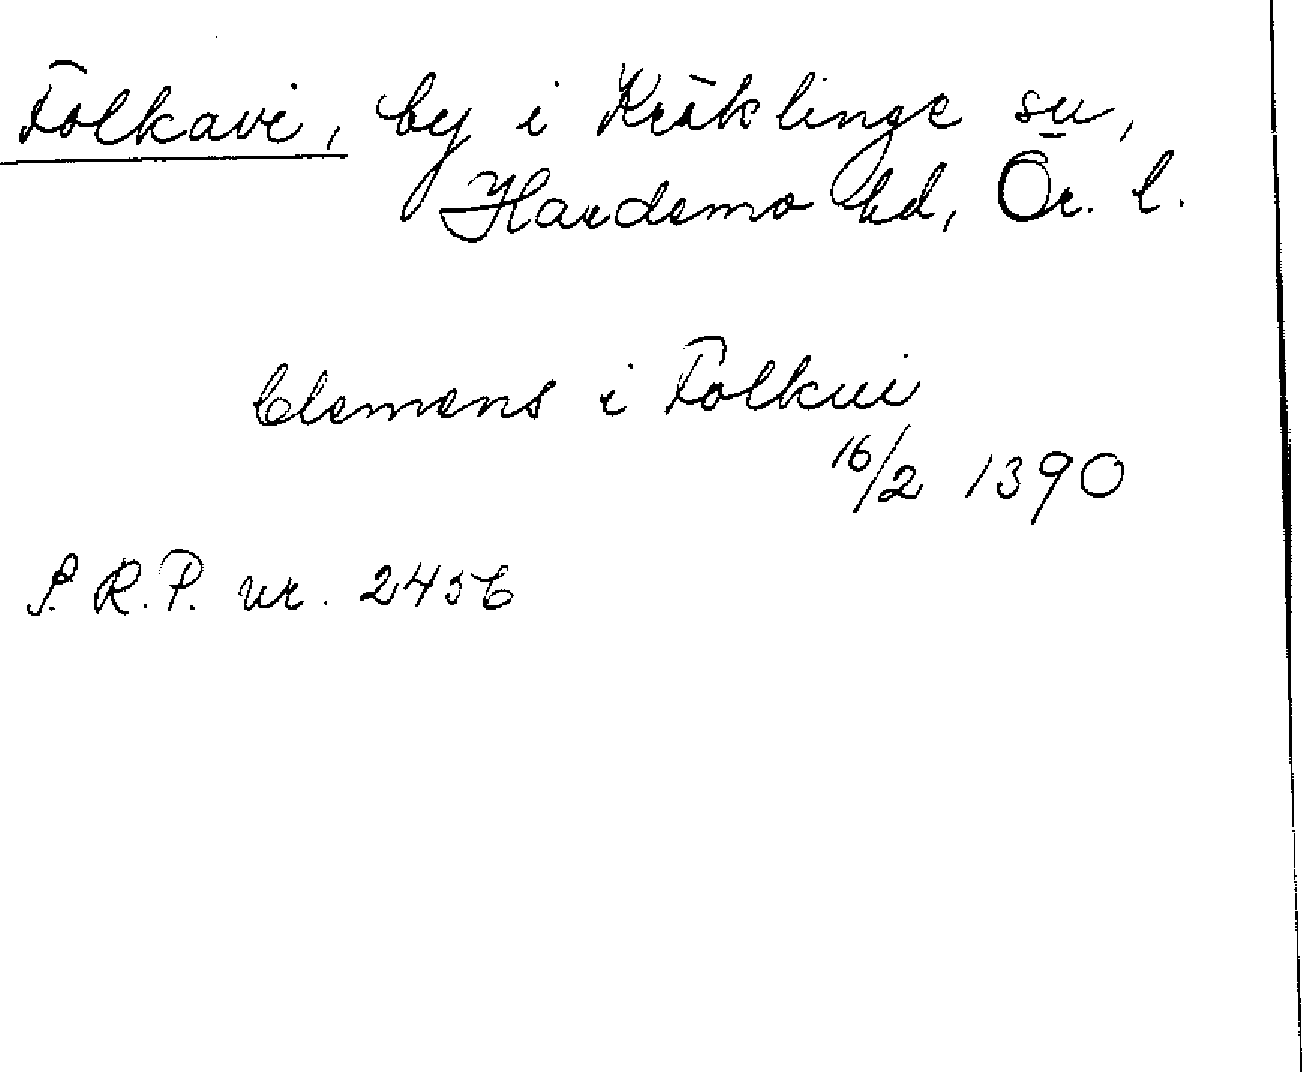 Folkavi, by i Kräklinge sn,
Hardemo hd, Ör. l.
Clemens i Folkui
16/2 1390
S.R.P. nr. 2456